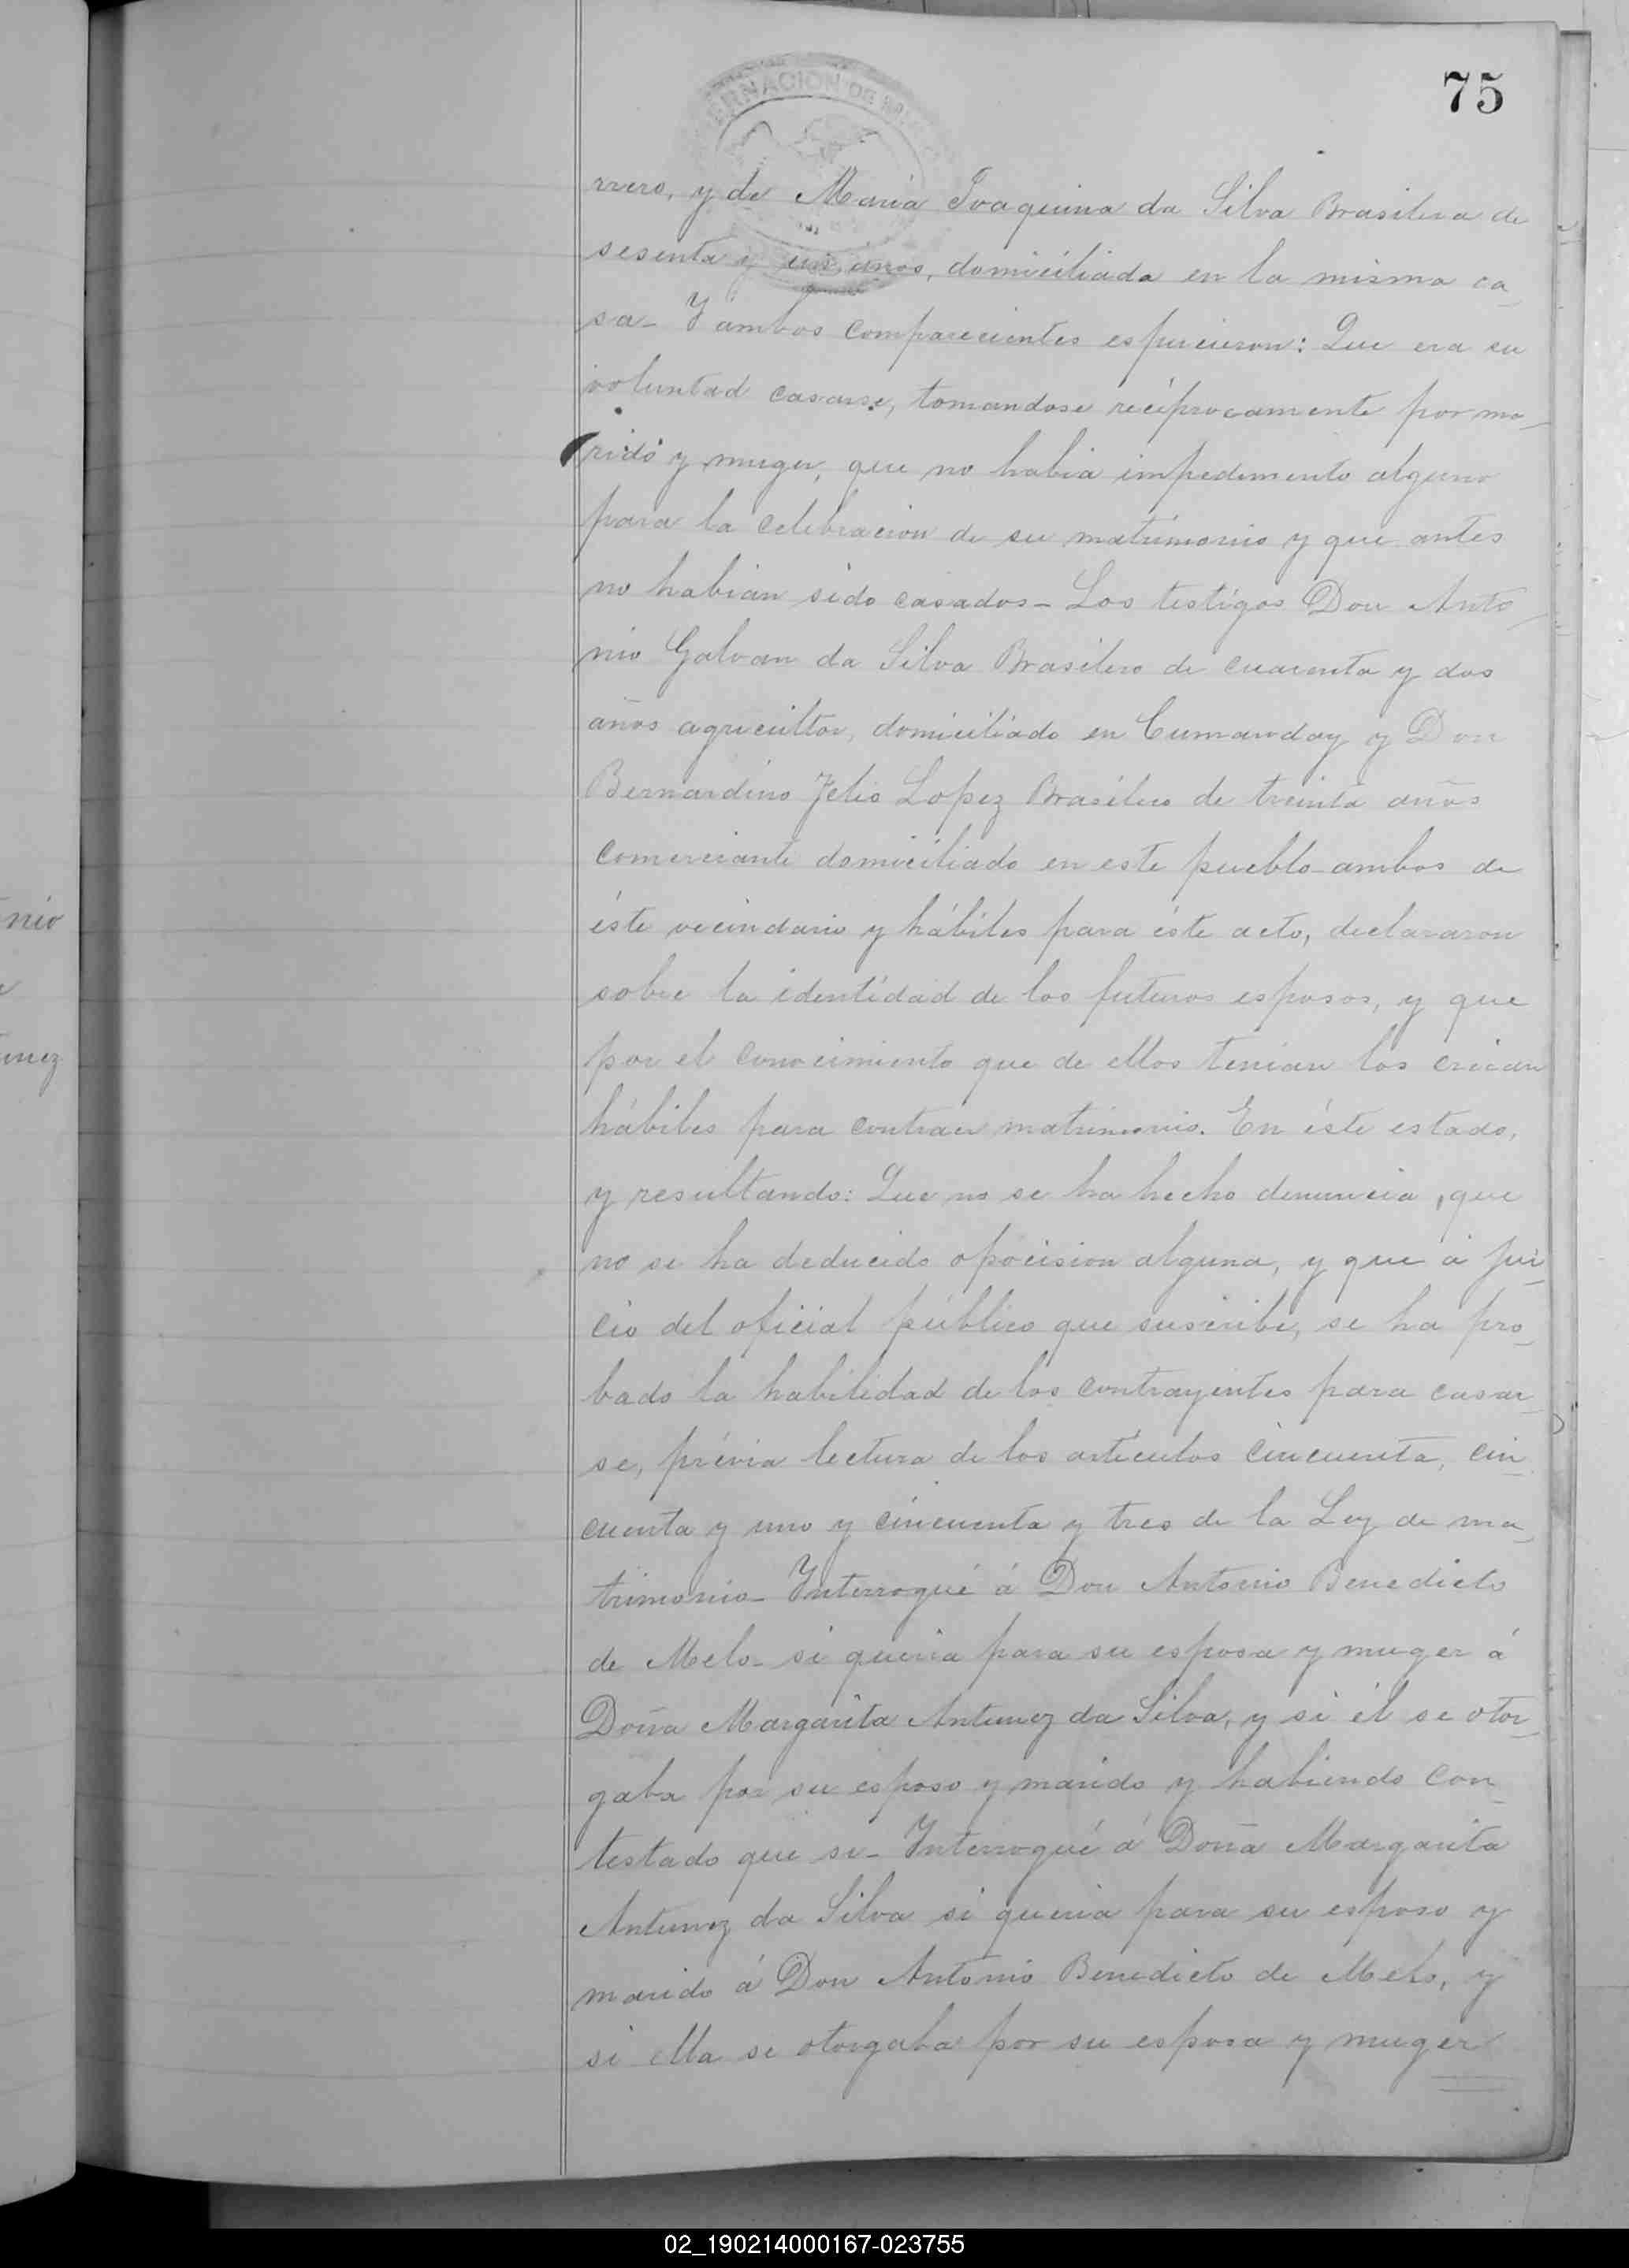 75
ERNACION DE
rrero, y de Maria Joaquina da Silva Brasilera de
sesenta y años, domiciliada en la misma ca_
sa_ Y ambos comparecientes espucieron: Que era su
voluntad casarse, tomandose reciprocamente por ma_
rido y muger, que no habia impedimento alguno
para la celebracion de su matrimonio y que antes
no habian sido casados_ Los testigos Don Anto_
nio Galvan da Silva Brasilero de cuarenta y dos
años agricultor, domiciliado en Cumanday y Don
Bernardino Felis Lopez Brasilero de treinta años
comerciante domiciliado en este pueblo ambos de
éste vecindario y hábiles para éste acto, declararon
sobre la identidad de los futuros esposos, y que
por el conocimiento que de ellos tenian los creian
hábiles para contraer matrimonio. En éste estado,
y resultando: Que no se ha hecho denuncia, que
no se ha deducido opocision alguna, y que á jui_
cio del oficial público que suscribe, se ha pro_
bado la habilidad de los contrayentes para casar_
se, prévia lectura de los artículos cincuenta, cin_
cuenta y uno y cincuenta y tres de la Ley de ma_
trimonio_ Ynterrogué á Don Antonio Benedicto
de Melo_ si queria para su esposa y muger á
Doña Margarita Antunez da Silva, y si él se otor_
gaba por su esposo y marido y habiendo con_
testado que si_ Ynterrogué á Doña Margarita
Antunez da Silva si queria para su esposo y
marido á Don Antonio Benedicto de Melo, y
si ella se otorgaba por su esposa y muger
nio
unez
02_190214000167-023755